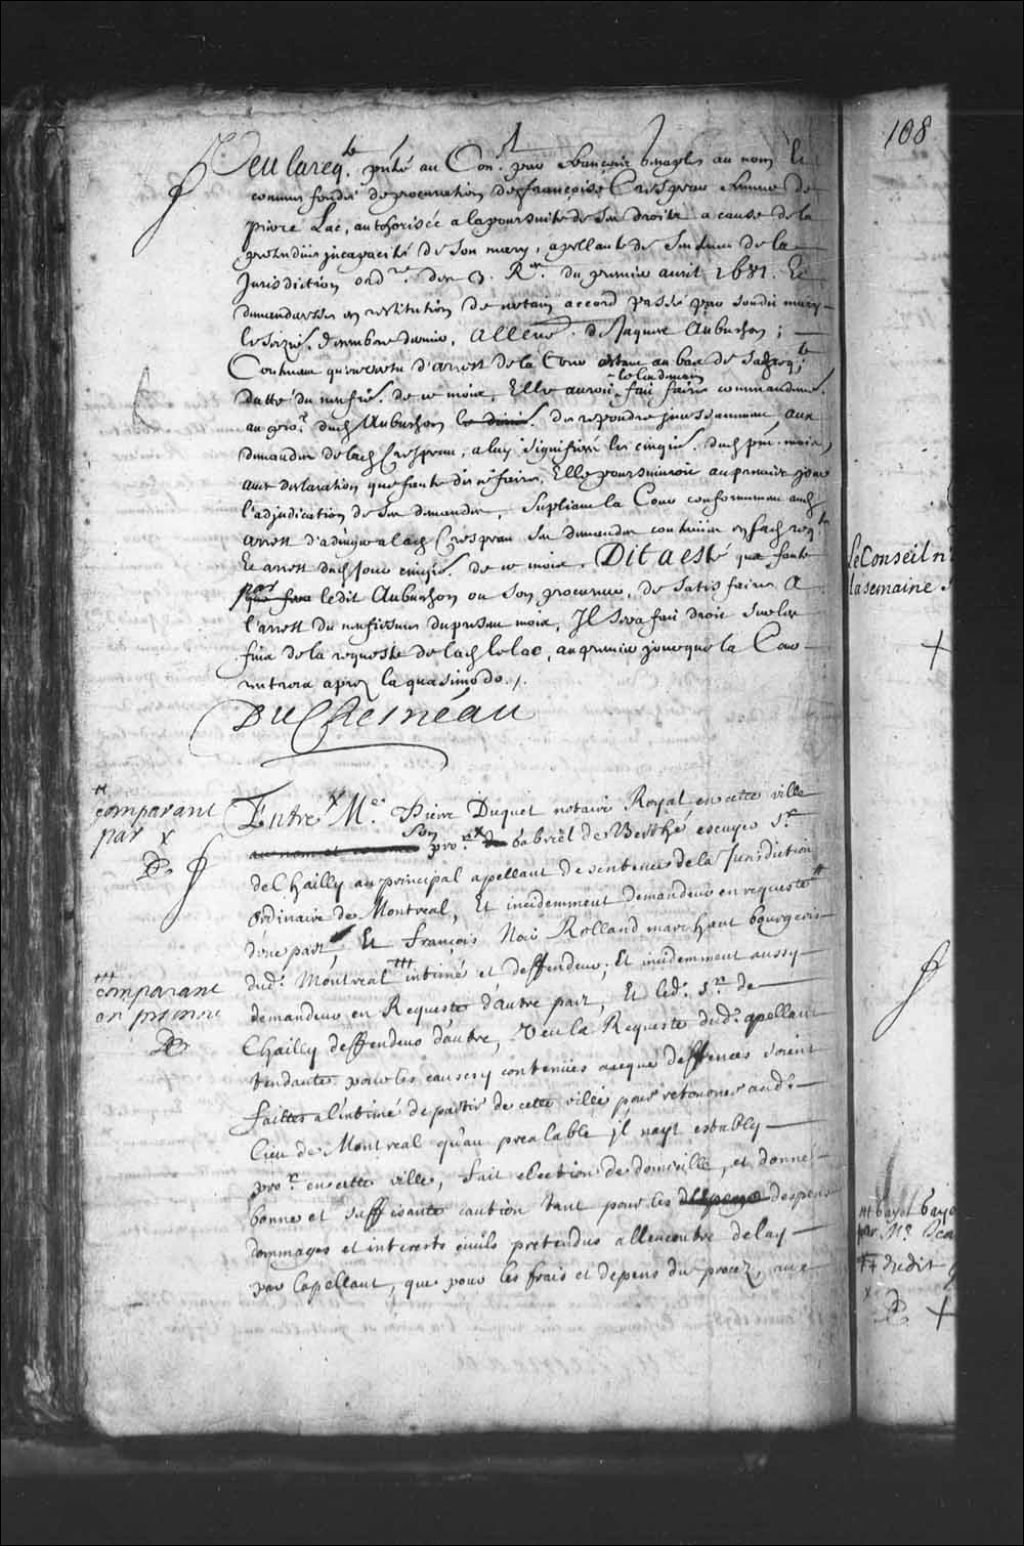 108
Veu la req.te pnté au Con.l par François au nom et
comme fondé de procuration de françoise Crespeau femme de
pierre Lac, authorisée a la poursuite de ses droits a cause de la
pretendüe jncapacité de son mary, apellante de Sentence de la
Jurisdiction ord.re des 3. R.es du premier auril 1681. Et
demanderesse en restitution de certain accord passé par sondit mary
le seizie. decembre dernier, allencõ. de Jaques Aubuchon;
Contenant qu'en vertu d'arrest de la Cour estant au bas de sa req.te
datté du neufie. de ce mois, Elle auroit le lendemain fait faire commandemt.
au pro.r dud Aubuchon de respondre jncessamment aux
demandes de lad Crespeau, a luy signifieés le cinquie. dud pnt. mois,
auec declaration que faute de ce faire, Elle poursuiuroit au premier jour
l'adjudication de ses demandes, Supliant la Cour conformement aud
arrest d'adiuger a lad Crespeau ses demandes contenües en sad req.te
Et arrest dud jour cinquie. de ce mois. Dit a esté que faute
par ledit Aubuchon ou son procureur, de satisfaire a
l'arrest du neufiesme du present mois, Jl sera fait droit sur les
fins de la requeste de lad le lac, au premier jour que la Cour
rentrera aprez la quasimodo./.
DuChesneau
comparant
par x
Entre x M.e Pierre Duquet notaire Royal en cette ville
son pro.r x Gabriël de Berthé escuyer s.r
de Chailly au principal apellant de sentence de la Jurisdiction
Ordinaire de Montreal, Et incidemment demandeur en requeste
d'une part, Et François Noir Rolland marchant bourgeois
dud. Montreal intimé et deffendeur, Et incidemment aussy
comparant
en personne
demandeur en Requeste d'autre part, Et led. s.r de
Chailly deffendeur d'autre, Veu la Requeste dud. apellant
tendante pour les causes y contenües a ce que deffences soient
faittes a l'intimé de partir de cette ville pour retourner aud.
lieu de Montreal qu'au prealable jl nayt estably
pro.r en cette ville, fait election de domicille, et donné
bonne et suffisante caution tant pour les despens
dommages et interests ciuils pretendus allencontre de luy
par l'apellant, que pour les frais et depens du procez,
le Conseil
la semaine
dudit